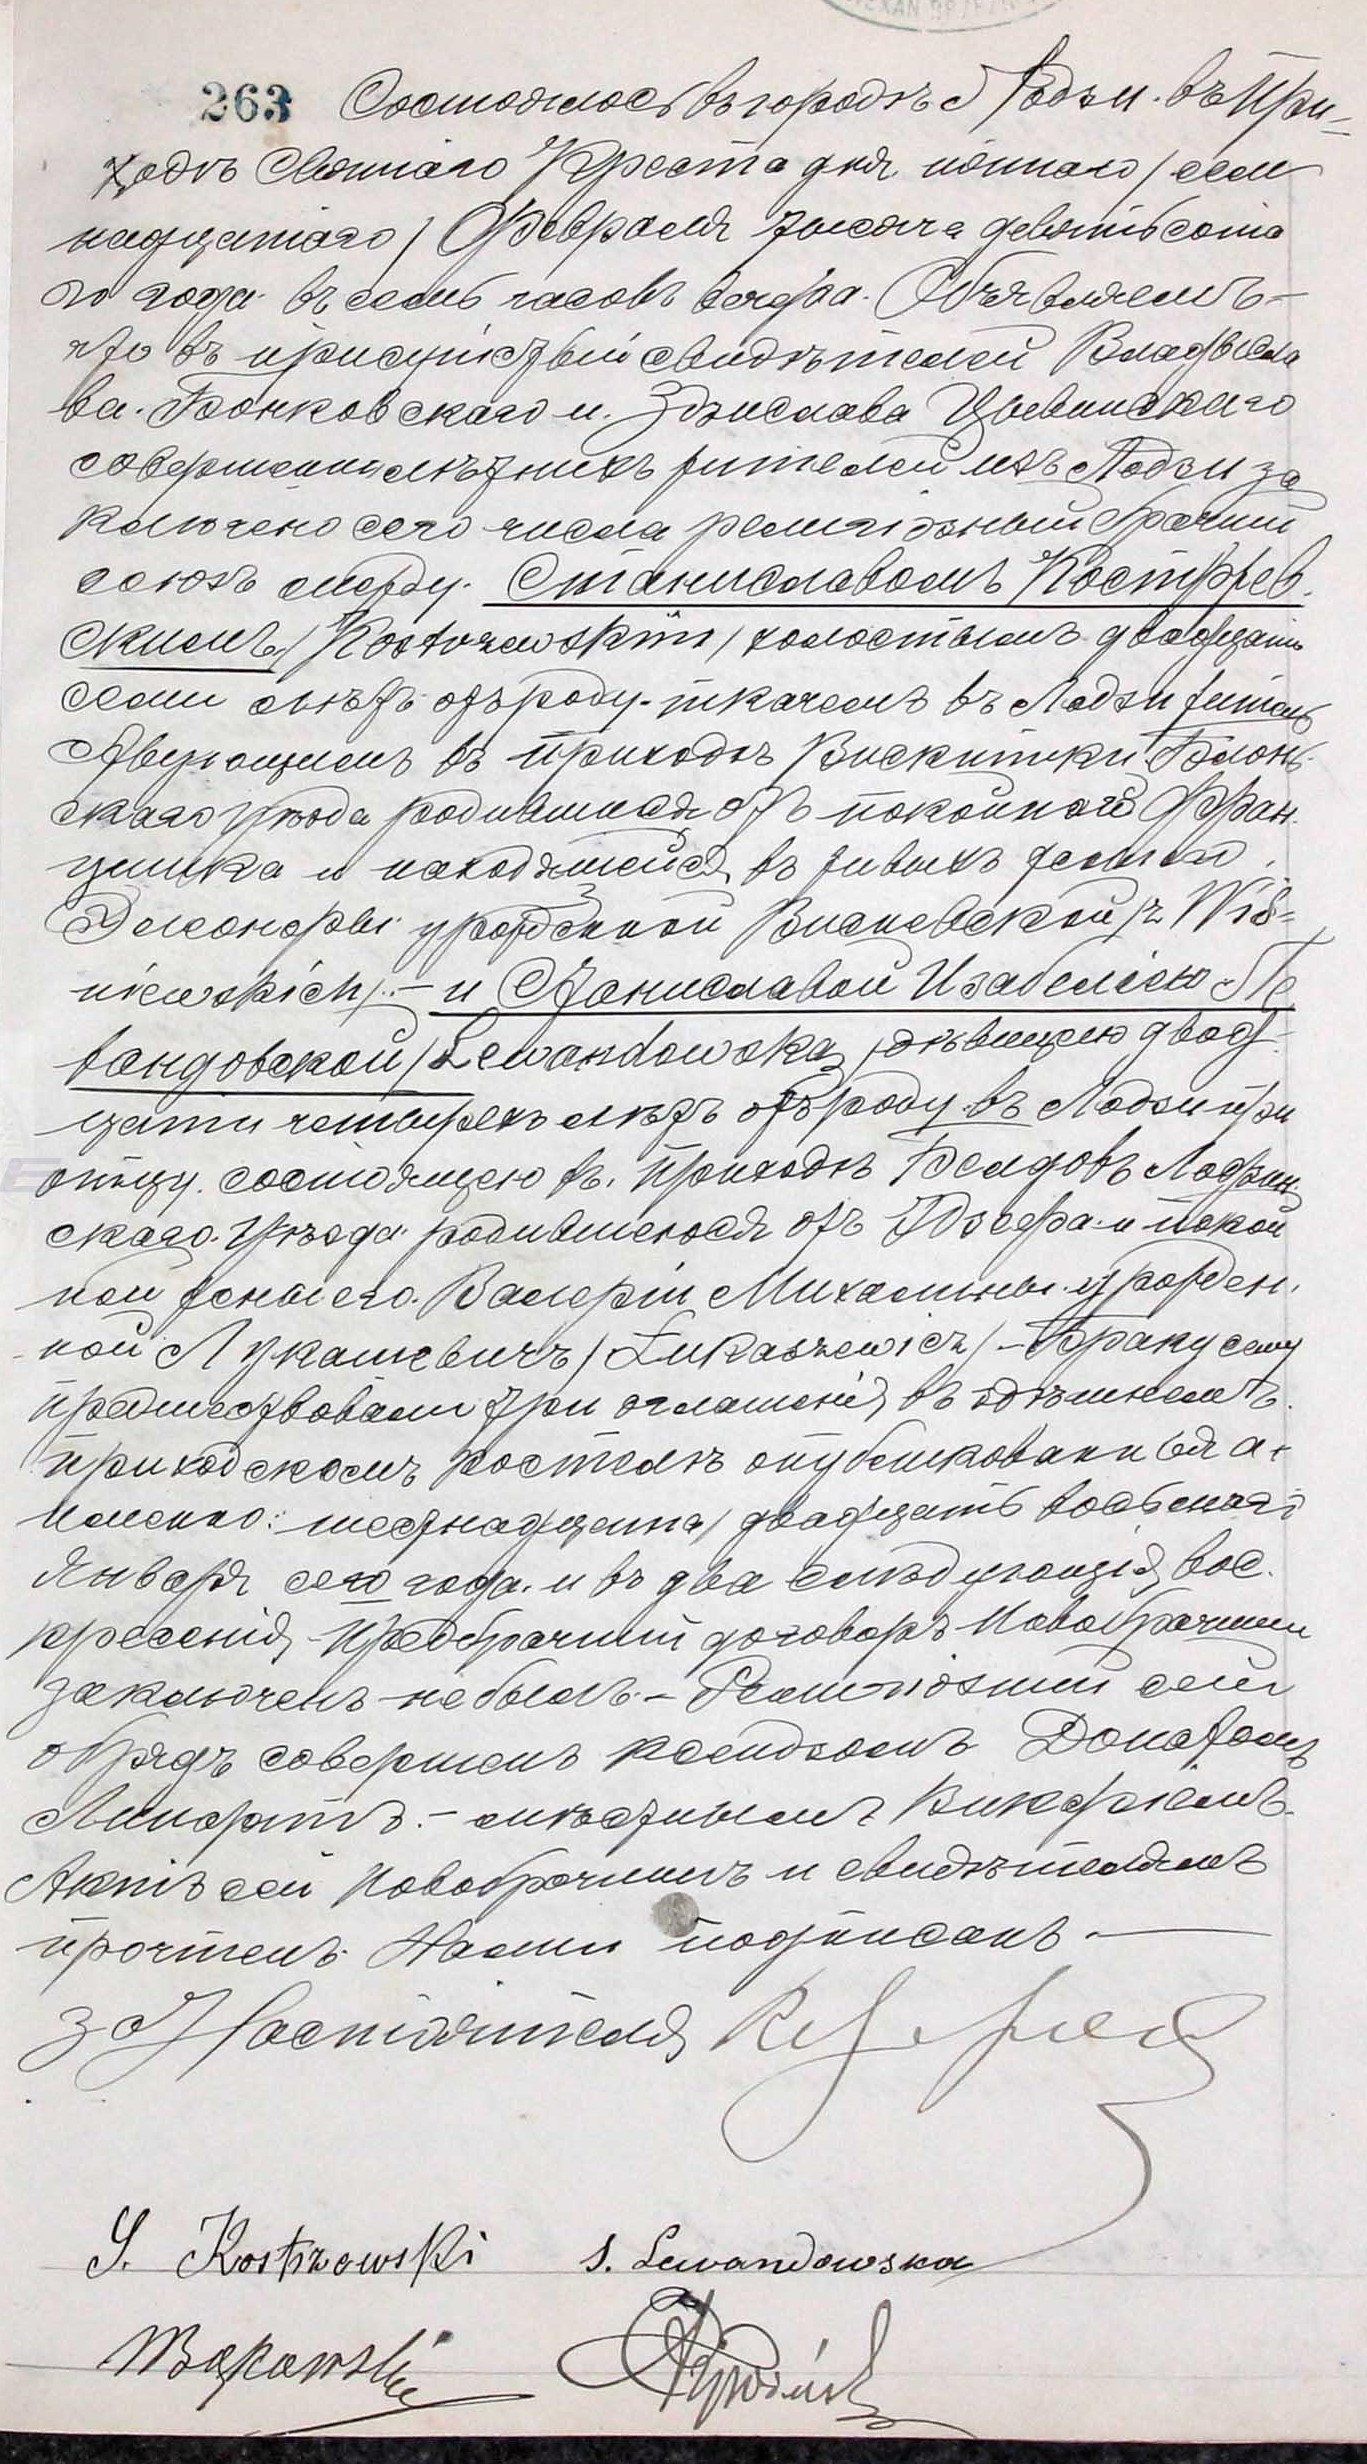 263 Состоялось въ городѣ Лодзи въ При-
ходѣ Святаго Креста дня пятаго / сем
надцатаго / Февраля тысяча девятьсота
го года въ семь часовъ вечера. Объявляемъ-
что въ присутствіи свидѣтелей Владысла
ва Бонковскаго и Здзислава Цывинскаго
совершеннолѣтнихъ жителей изъ Лодзи за
ключено сего числа религіозный брачный
союзъ между Станиславомъ Костржев
скимъ / Kostrzewskim / холостымъ двадцати
семи лѣтъ отъ роду ткачемъ въ Лодзи житель
ствующимъ въ приходѣ Вискитки Блонь
скаго уѣзда родившимся отъ покойнаго Фран
цишка и находящейся въ живыхъ жены его
Элеоноры урожденной Висневской / z Wiś-
niewskich / - и Станиславой Изабеллею Ле
вандовской / Lewandowska / дѣвицею двад-
цати четырехъ лѣтъ отъ роду въ Лодзи при
отцу состоящею въ приходѣ Белдовъ Лодзин
скаго уѣзда родившеюся отъ Юзефа и покой
ной жены его Валеріи Михалины урожден
ной Лукашевичъ / Łukaszewicz / - Браку сему
предшествовали три оглашенія въ здѣшнемъ
приходскомъ костелѣ опубликованныя а
именно: шестнадцата / двадцать восьмаго
Января сего года и въ два слѣдующія вос
кресенія - Предбрачный договоръ Новобрачными
заключенъ не былъ. - Религіозный сей
обрядъ совершенъ ксендзомъ Донатомъ
- мѣстнымъ Викаріемъ.
Актъ сей Новобрачнымъ и свидѣтелямъ
прочтенъ Нами подписанъ. -
за Настоятеля
S. Kostrzewski S. Lewandowska
WBąkowski